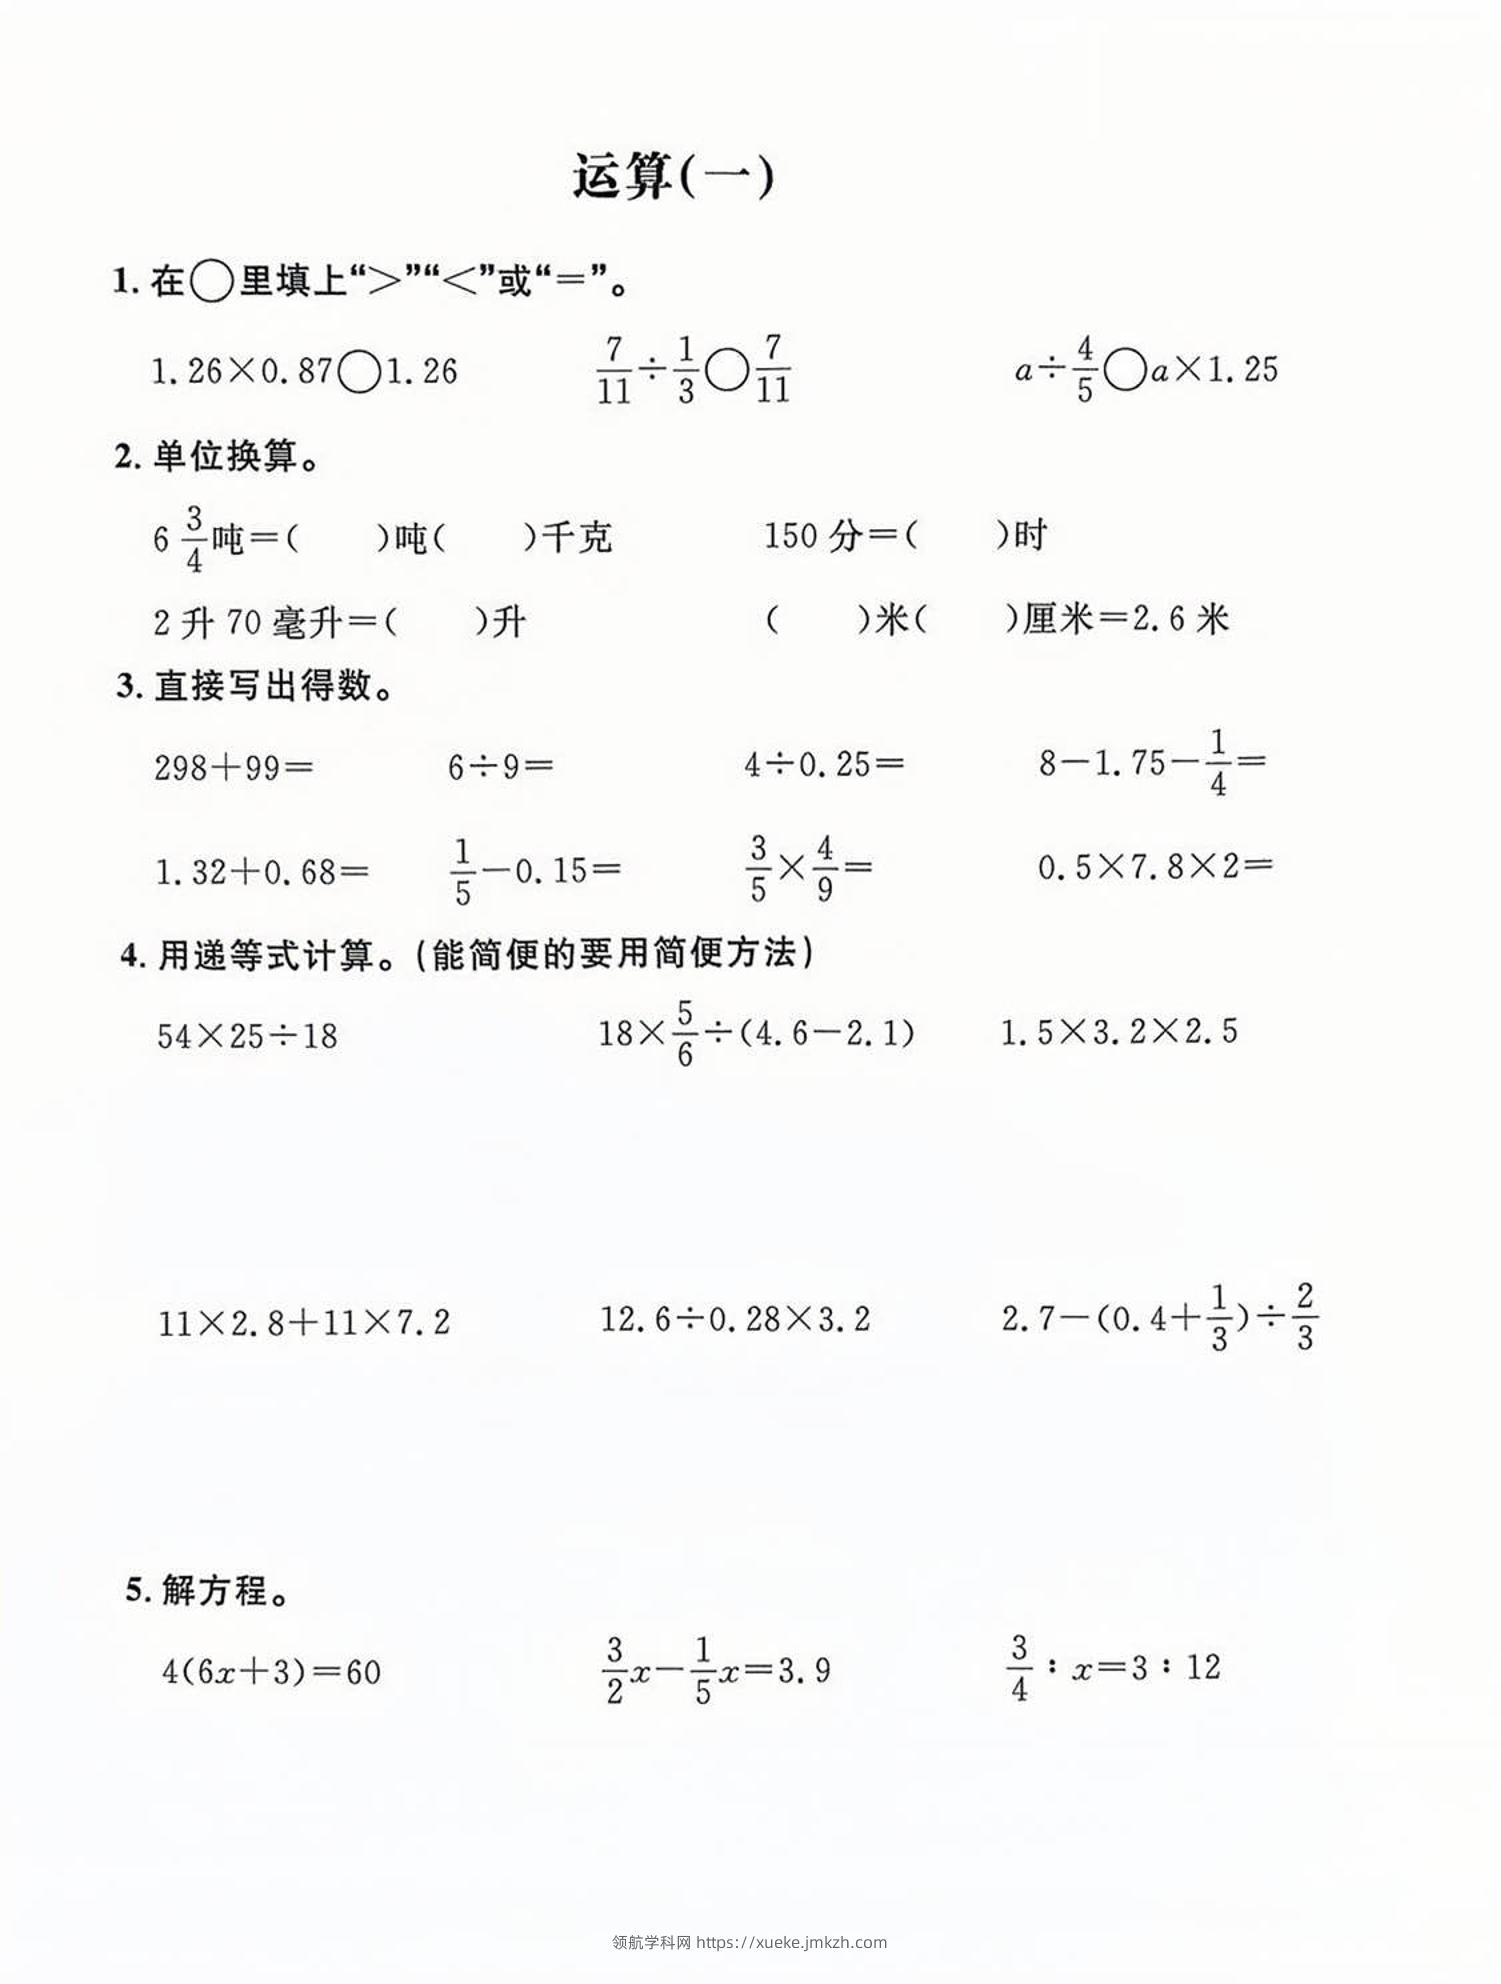 运算(一)
1. 在○里填上“>”“<”或“=”。
1.26×0.87○1.26 7/11÷1/3○7/11 a÷4/5○a×1.25
2. 单位换算。
6 3/4吨=( )吨( )千克 150分=( )时
2升70毫升=( )升 ( )米( )厘米=2.6米
3. 直接写出得数。
298+99= 6÷9= 4÷0.25= 8-1.75-1/4=
1.32+0.68= 1/5-0.15= 3/5×4/9= 0.5×7.8×2=
4. 用递等式计算。(能简便的要用简便方法)
54×25÷18 18×5/6÷(4.6-2.1) 1.5×3.2×2.5
11×2.8+11×7.2 12.6÷0.28×3.2 2.7-(0.4+1/3)÷2/3
5. 解方程。
4(6x+3)=60 3/2x-1/5x=3.9 3/4:x=3:12
领航学科网 https://xueke.jmkzh.com